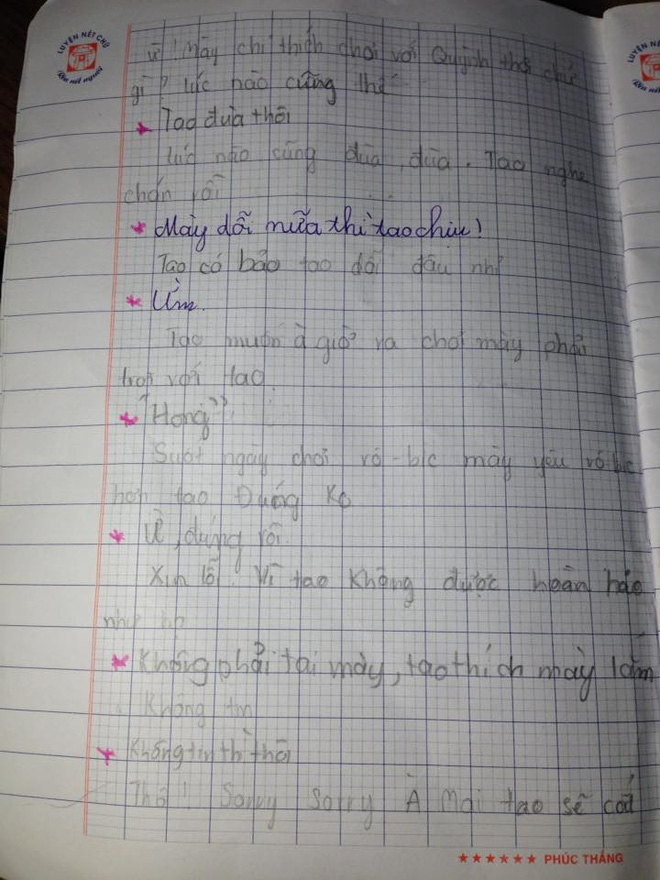 LUYỆN NÉT CHỮ
Rèn nết người
Ừ! Mày chỉ thích chơi với Quỳnh thôi chứ
gì? lúc nào cũng thế
* Tao đùa thôi
lúc nào cũng đùa, đùa. Tao nghe
chán rồi
* Mày dỗi nữa thì tao chịu!
Tao có bảo tao dỗi đâu nhỉ
* Ừm.
Tao muốn à giờ ra chơi mày phải
với tao.
* "Hong"
Suốt ngày chơi rô-bíc mày yêu rô-bíc
hơn tao Đuống Ko
* Ừ, đúng rồi.
Xin lỗi. Vì tao không được hoàn hảo
như
* Không phải tại mày, tao thích mày lắm
Không tin
* Không tin thì thôi
Thôi! Sorry Sorry À Mai tao sẽ cất
★★★★★★ PHÚC THẮNG